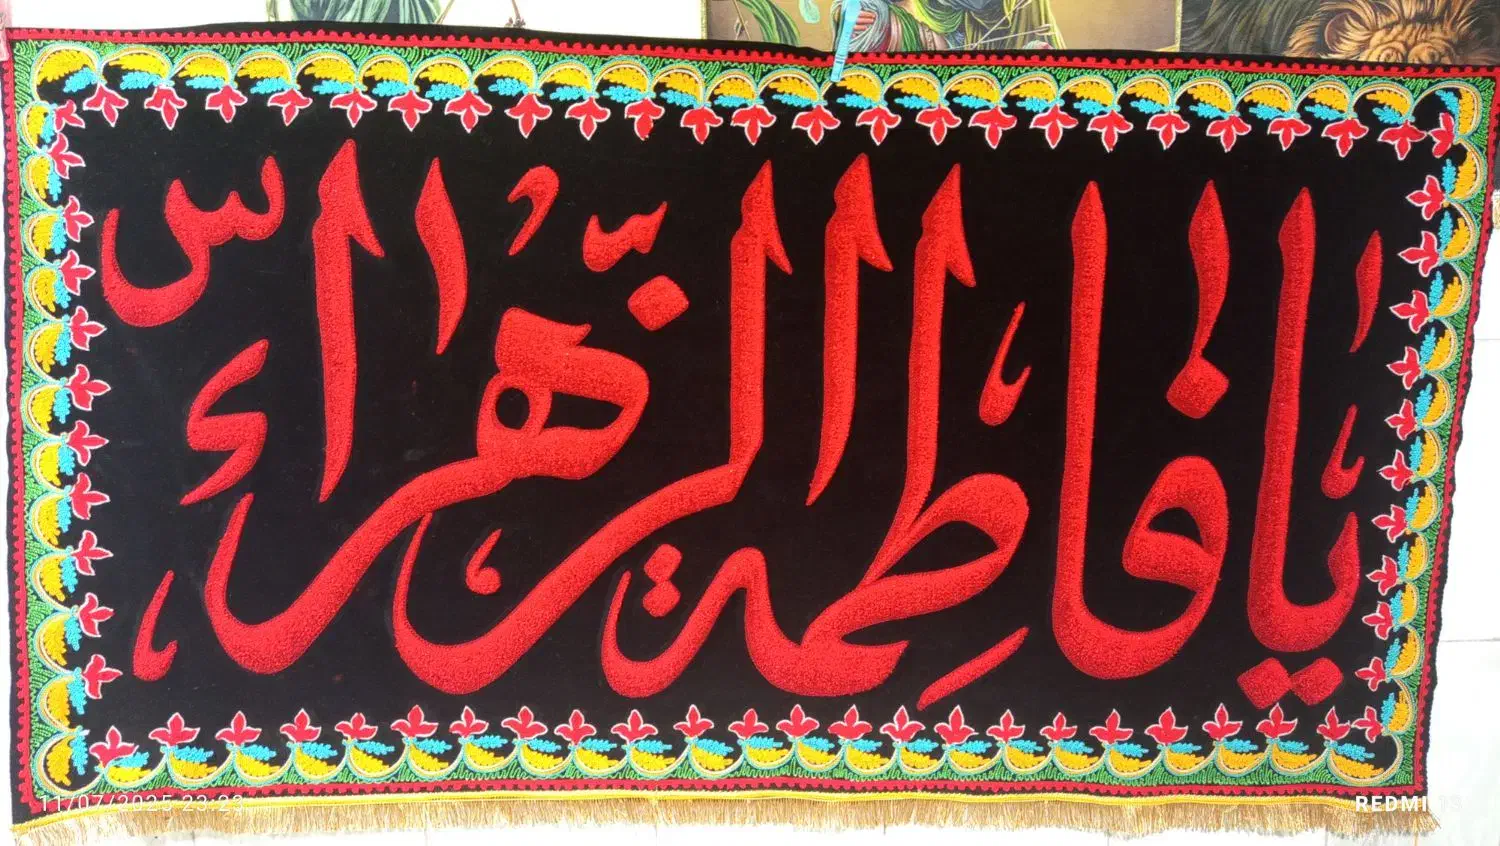 يا فاطمة الزهراء
11/07/2025 23:23
REDMI 13